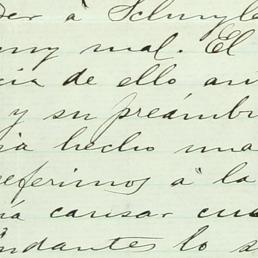 der à Schuyle
muy mal. El
cia de ello an
y su preámbu
ia hecho una
referimos a la
ía causar cua
ndantes lo s